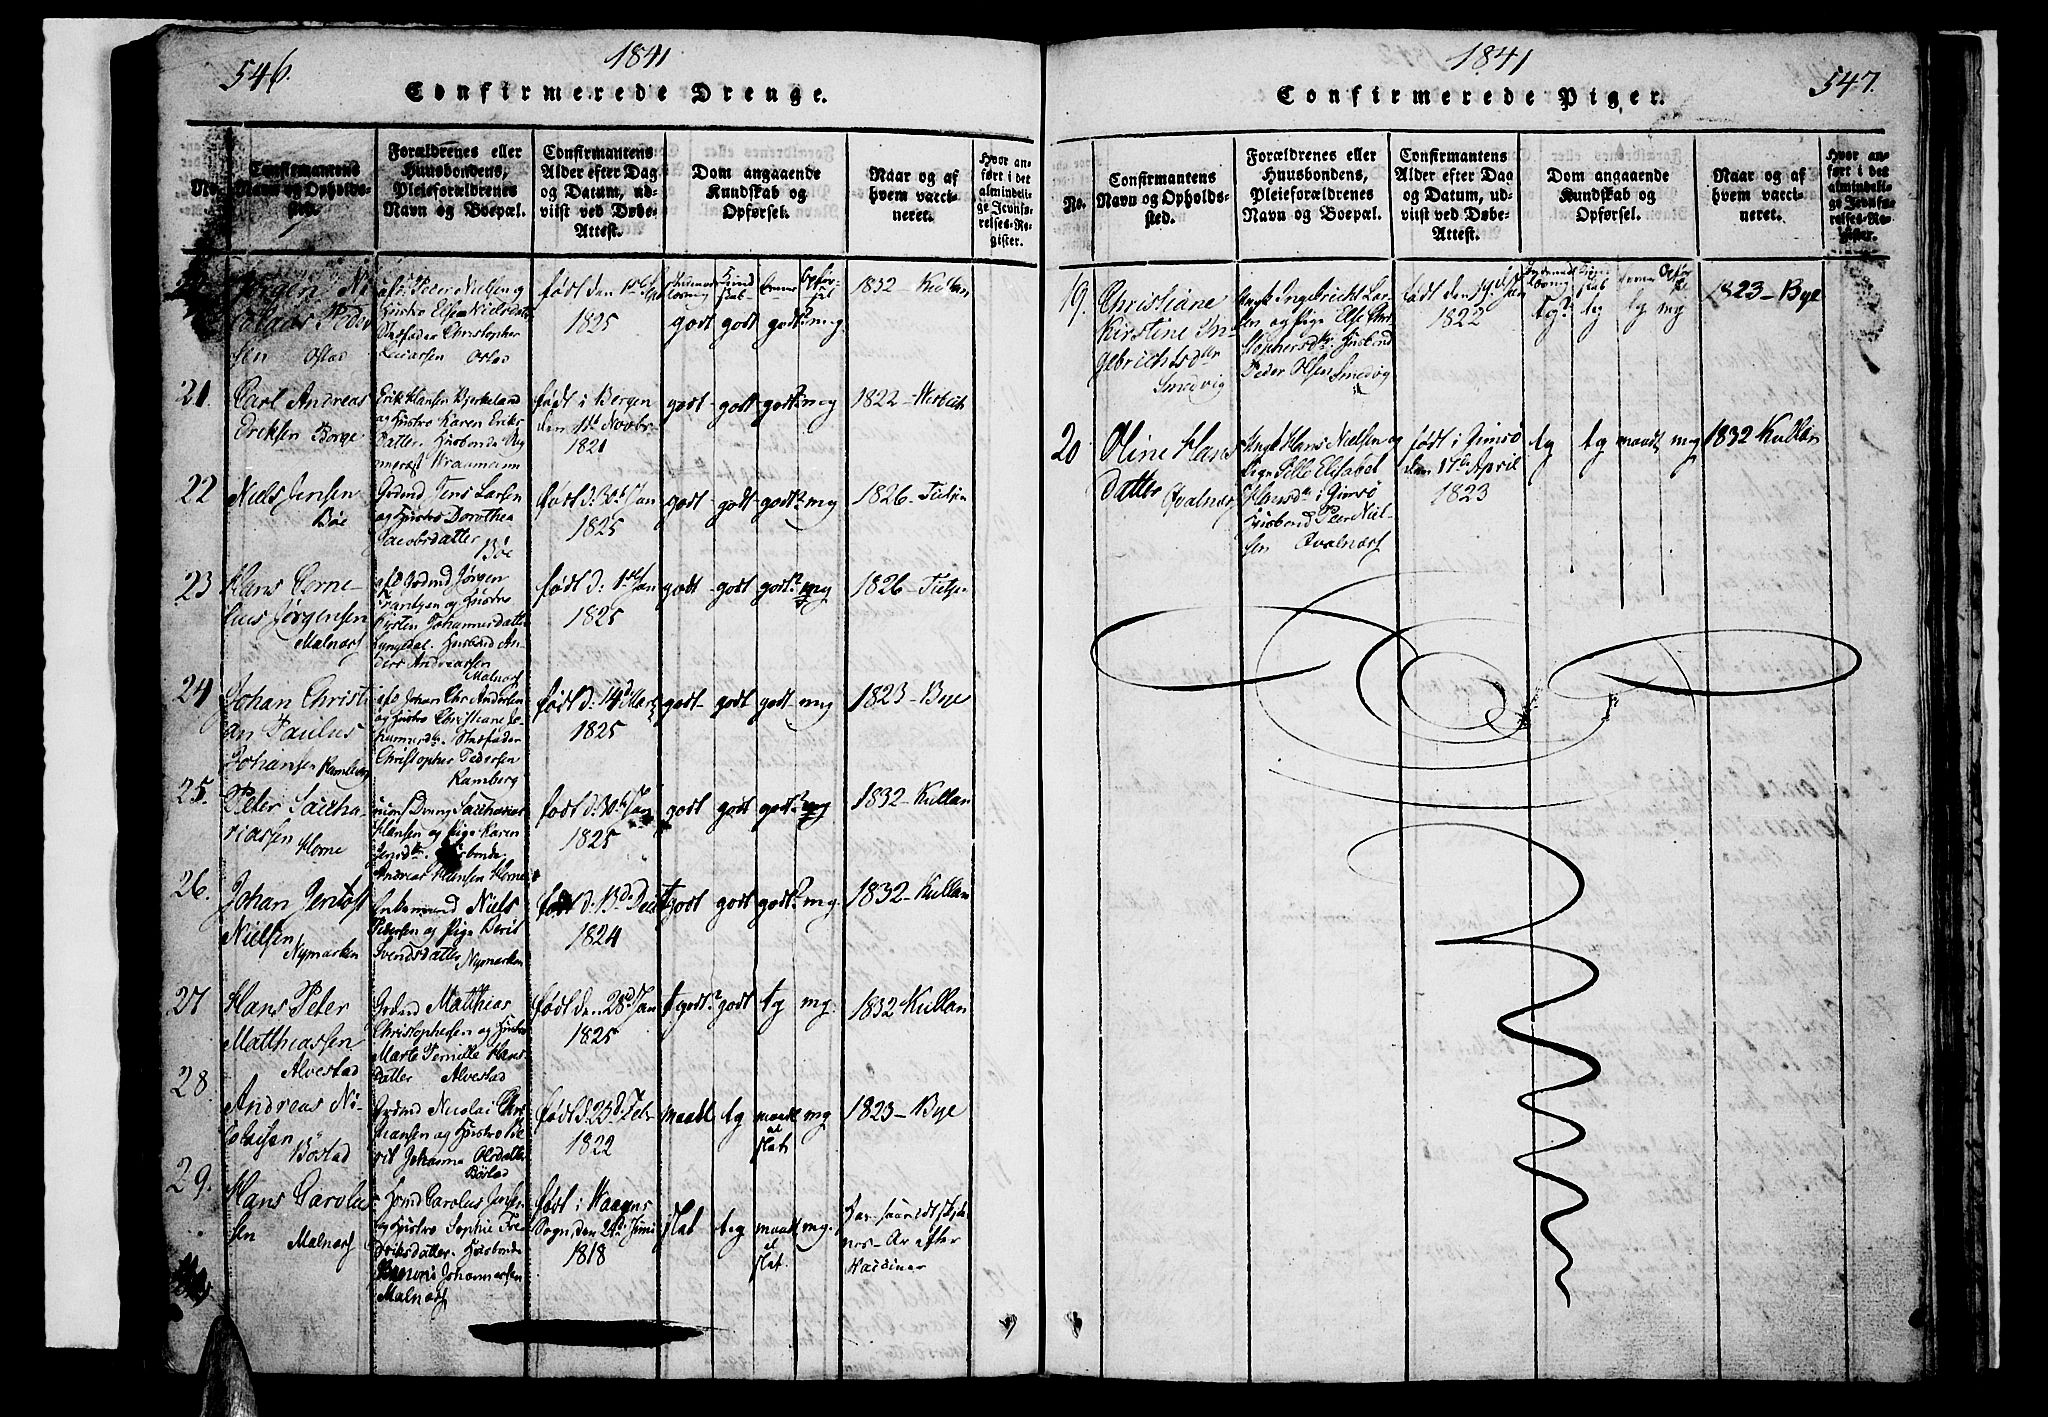 546.
1841
Confirmerede Drenge.
No.
Confirmantens
Navn og Opholds-
sted.
Forældrenes eller
Huusbondens,
Pleieforældrenes
Navn og Boepæl.
Confirmantens
Alder efter Dag
og Datum, ud-
viist ved Døbe-
Attest.
Dom angaaende
Kundskab og
Opførsel.
Naar og af
hvem vacci-
neret.
Hvor an-
ført i det
almindeli-
ge Jevnfø-
relses-Re-
gister.
Jørgen Ni
Peder
sen
Peer Nielsen
Hustro Elsen Nielsdatter
Stedfader Christopher
født den
1825
godt godt godt mg
1832 - Kullan
21
Carl Andreas
Eriksen Borge
Erik Hansen Bjerkeland
og Hustro Karen Eriks
Datter. Husbonde
født i Bergen
den 11te Novbr
1821
godt godt godt mg
1822 -
22
Niels Jensen
Bøe
Godmd Jens Larsen
og Hustro Dorothea
Jacobsdatter
Bøe
født d: 30te Jan
1825
godt godt godt mg
1826 - Tietjen
23
Hans Corne-
lius Jørgensen
Malnæsf
afd Godmd Jørgen
og Hustro
Kirsten Johannesdatter
Lyngedal. Husbond An-
ders Andreassen
Malnæsf
født d: 1ste Jan
1825
godt godt godt mg
1826 - Tietjen
24
Johan Christi
an Paulus
Johansen Ramberg
afd Johan Chr Andersen
og Hustro Christiane Jo
hannesdtr. Stedfader
Christopher Pedersen
Ramberg
født d: 14d Marz
1825
godt godt godt mg
1823 - Bye
25.
Peter Sacha
riassen
Horne
Sacharias
Hansen og Pige Karen
Jensdtr. Husbonde
Andreas Hansen Horne
født d: 30te Jan
1825
godt godt godt mg
1832 - Kullan
26.
Johan Jentoft
Nielsen
Nymarken
Enkemand Niels
Pedersen og Pige Berit
Svendsdatter Nymarken
født d: 13d Decbr
1824
godt godt godt mg.
1832 - Kullan
27
Hans Peter
Matthiassen
Alvestad
Godmd Matthias
Christophersen og Hustro
Marte Pernille Hans
Datter Alvestad
født den 28d Jan
1825
tgodt godt tg mg.
1832 Kullan
28
Andreas Ni-
colaisen
Bøstad
Nicolai
hansen og Hustro Be
rit Johanna Olsdatter
Bøstad
født d: 23d Febr
1822
maadl tg maadl
al
slet. mg
1823 - Bye
29.
Hans Carolius
sen Malnæsf
Carolus Jensen
og Hustro Sophie Fre
driksdatter. Husbonde
Johannessen
Malnæsf
født i Waagens
Sogn, den 24d Juni
1818
slet tg maadl
al
slet. mg.
Har
- Ar efter
Vaccinen
1841
547.
Confirmerede Piger.
No.
Confirmantens
Navn og Opholds-
sted.
Forældrenes eller
Huusbondens,
Pleieforældrenes
Navn og Boepæl.
Confirmantens
Alder efter Dag
og Datum, ud-
viist ved Døbe-
Attest.
Dom angaaende
Kundskab og
Opførsel.
Naar og af
hvem vacci-
neret.
Hvor an-
ført i det
almindeli-
ge Jevnfø-
relses-Re-
gister.
19.
Christiane
Kirstine In-
gebrichtsdtr
Smedvig
Ungk Ingebricht Lar-
sen og Pige Else Chri
stophersdtr. Husbond
Peder Olsen Smedvig
født den
1822
tg? tg tg mg
1823 - Bye
20
Oline Hans
datter Qvalnæsf
Ungk Hans Nielsen og
Pige Sille Elisabet
Hansdr i Gimsø
Husbond Peer Niel-
sen Qvalnæsf
født i Gimsø
den 17de April
1823
tg tg maadl mg
1832 Kullan